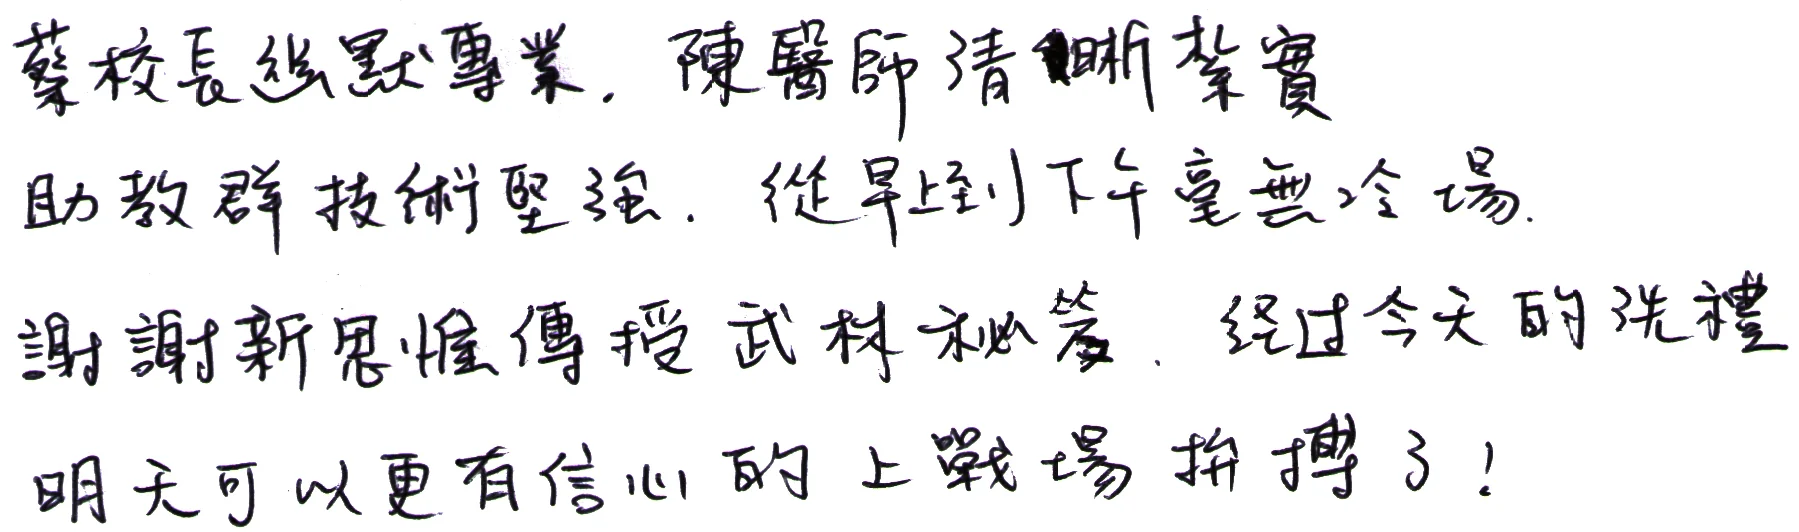 蔡校長幽默專業. 陳醫師清晰紮實
助教群技術堅強. 從早上到下午毫無冷場.
謝謝新思惟傳授武林秘笈. 经过今天的洗禮
明天可以更有信心的上戰場拚搏了!